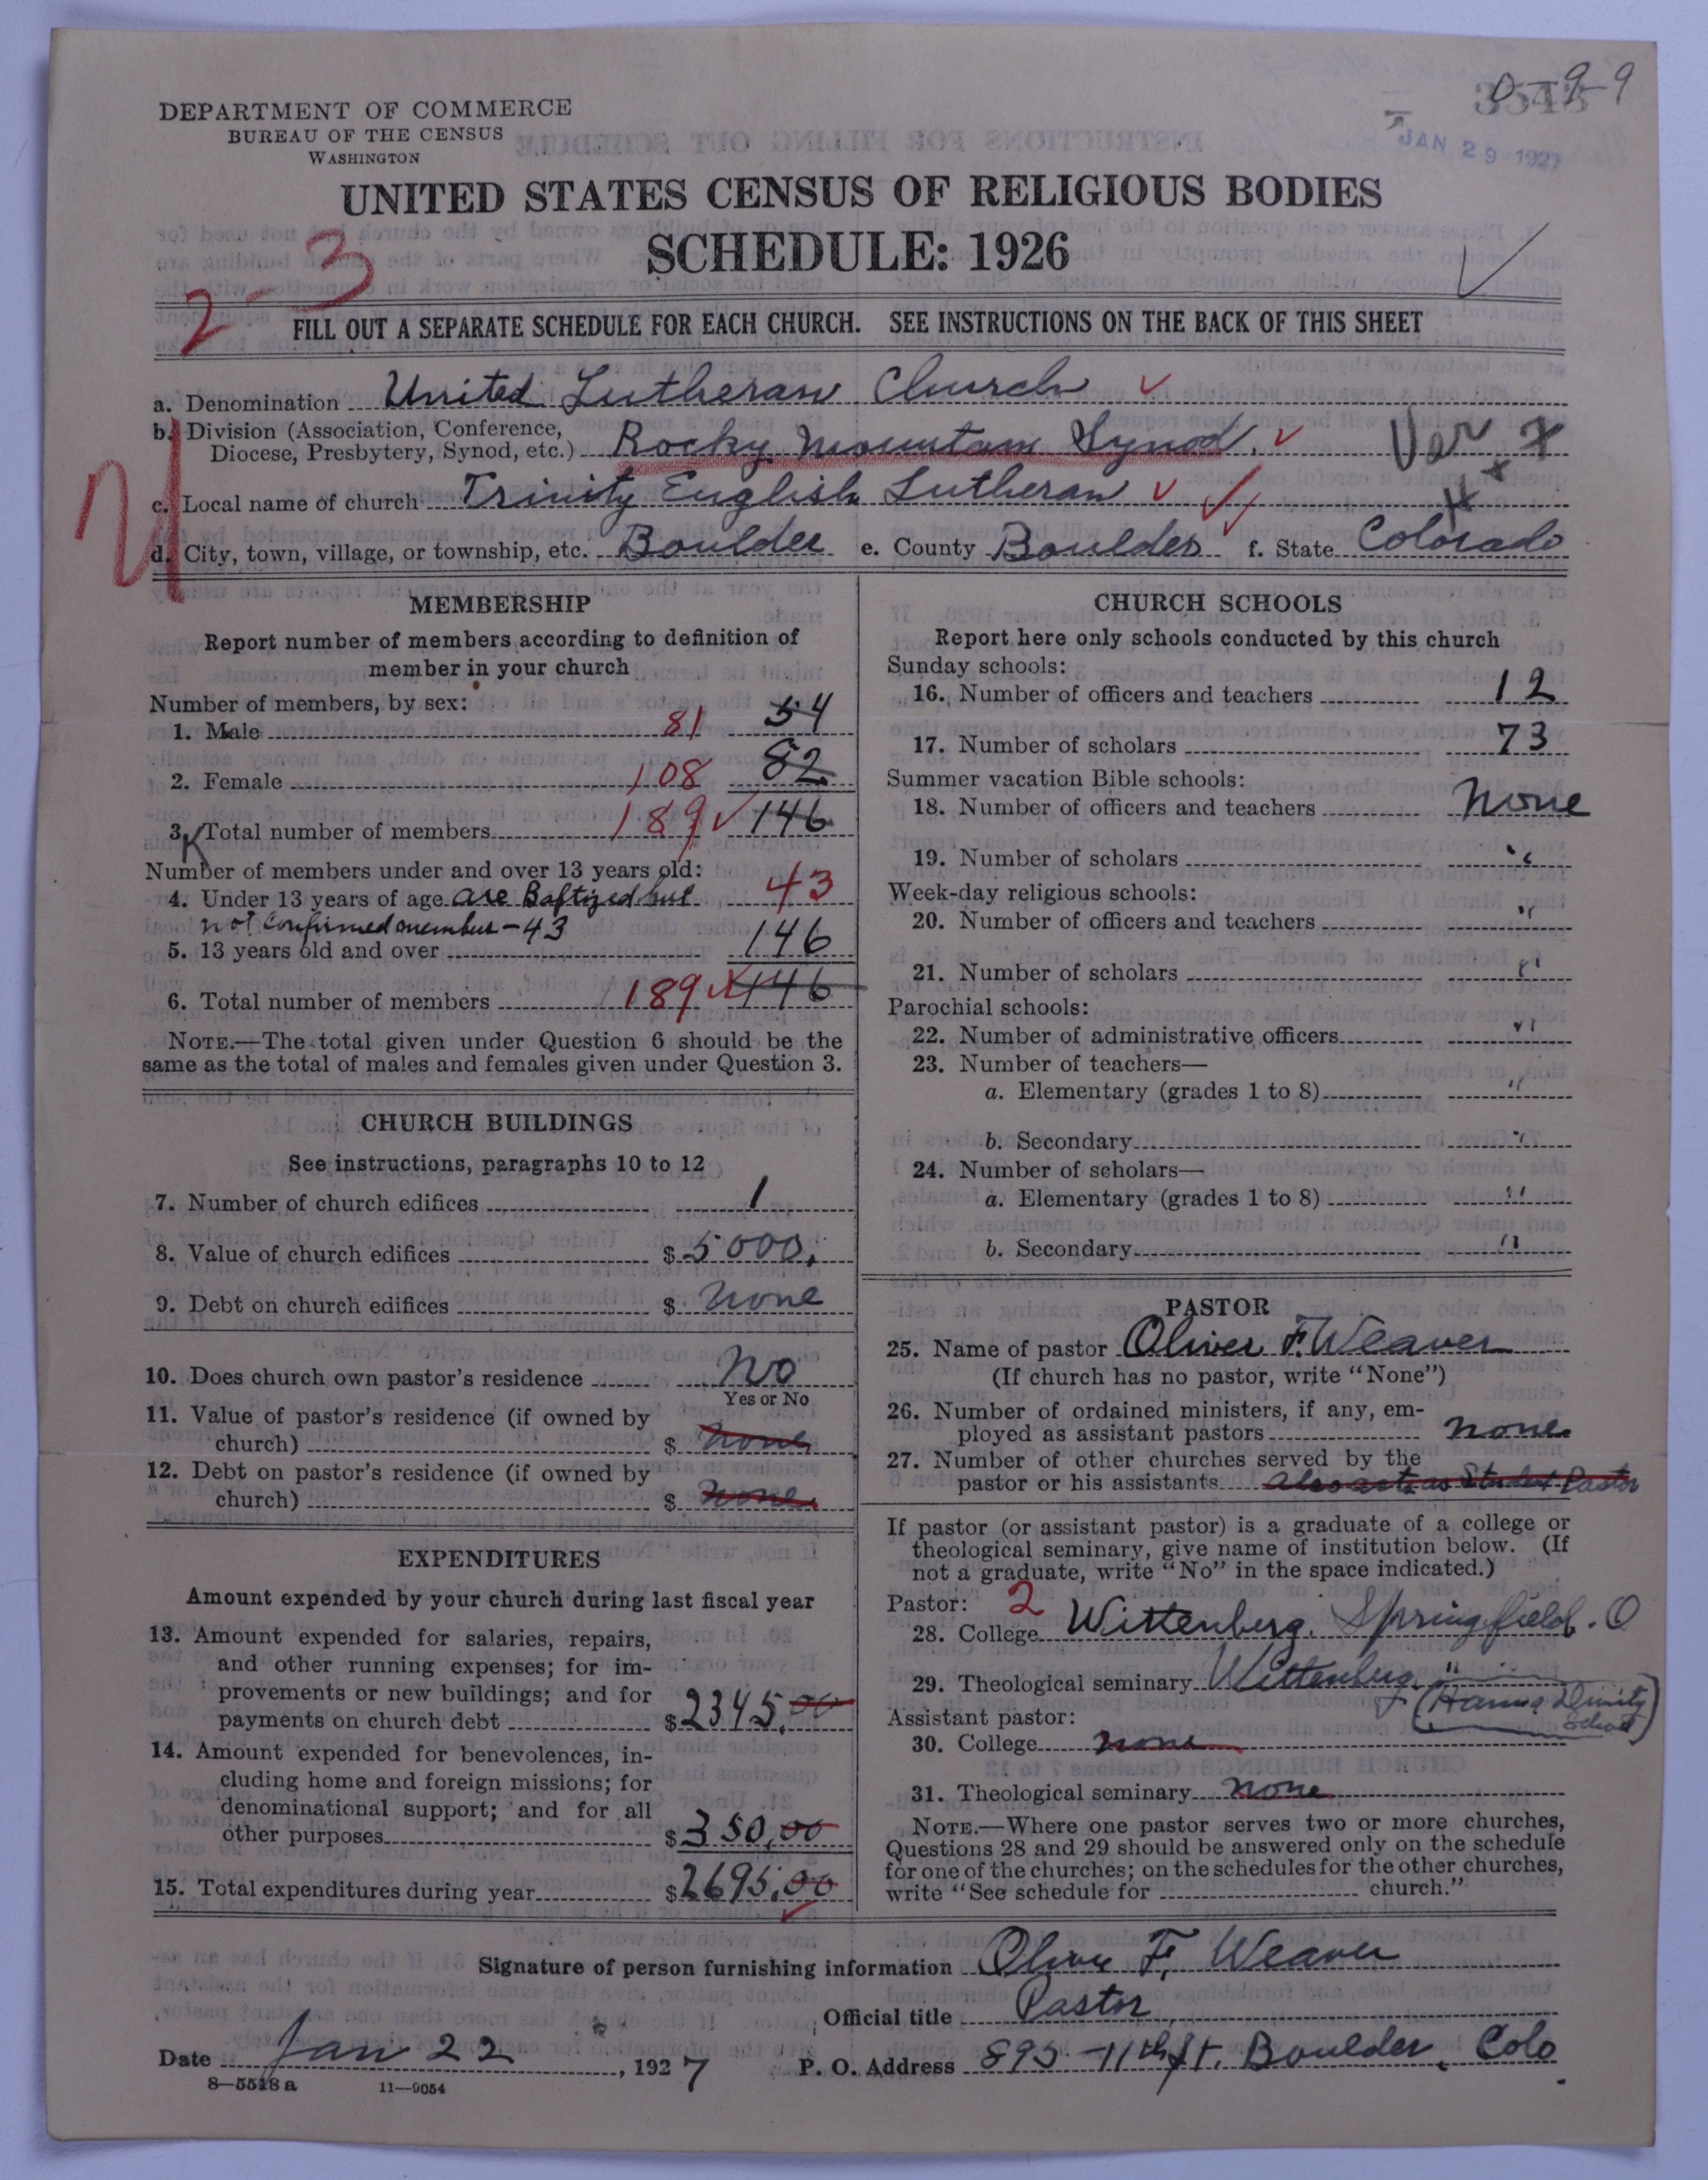 DEPARTMENT OF COMMERCE
BUREAU OF THE CENSUS
WASHINGTON
JAN 29 1927
UNITED STATES CENSUS OF RELIGIOUS BODIES
SCHEDULE: 1926
2-3
FILL OUT A SEPARATE SCHEDULE FOR EACH CHURCH. SEE INSTRUCTIONS ON THE BACK OF THIS SHEET
a. Denomination United Lutheran Church
b. Division (Association, Conference, Diocese, Presbytery, Synod, etc.) Rocky Mountain Synod. Ver
c. Local name of church Trinity English Lutheran
d. City, town, village, or township, etc. Boulder e. County Boulder f. State Colorado
MEMBERSHIP
Report number of members according to definition of
member in your church
Number of members, by sex:
1. Male 81 54
2. Female 108 82
3. Total number of members 189 146
Number of members under and over 13 years old:
4. Under 13 years of age are Baptized but 43
not Confirmed member - 43
5. 13 years old and over 146
6. Total number of members 189 146
NOTE.—The total given under Question 6 should be the
same as the total of males and females given under Question 3.
CHURCH BUILDINGS
See instructions, paragraphs 10 to 12
7. Number of church edifices 1
8. Value of church edifices $ 5000.
9. Debt on church edifices $ None
10. Does church own pastor's residence No
Yes or No
11. Value of pastor's residence (if owned by
church) $ None
12. Debt on pastor's residence (if owned by
church) $ None
EXPENDITURES
Amount expended by your church during last fiscal year
13. Amount expended for salaries, repairs,
and other running expenses; for im-
provements or new buildings; and for
payments on church debt $ 2345.00
14. Amount expended for benevolences, in-
cluding home and foreign missions; for
denominational support; and for all
other purposes $ 350.00
15. Total expenditures during year $ 2695.00
CHURCH SCHOOLS
Report here only schools conducted by this church
Sunday schools:
16. Number of officers and teachers 12
17. Number of scholars 73
Summer vacation Bible schools:
18. Number of officers and teachers None
19. Number of scholars "
Week-day religious schools:
20. Number of officers and teachers "
21. Number of scholars "
Parochial schools:
22. Number of administrative officers "
23. Number of teachers—
a. Elementary (grades 1 to 8) "
b. Secondary "
24. Number of scholars—
a. Elementary (grades 1 to 8) "
b. Secondary "
PASTOR
25. Name of pastor Oliver F. Weaver
(If church has no pastor, write "None")
26. Number of ordained ministers, if any, em-
ployed as assistant pastors None
27. Number of other churches served by the
pastor or his assistants Also acts as Student Pastor
If pastor (or assistant pastor) is a graduate of a college or
theological seminary, give name of institution below. (If
not a graduate, write "No" in the space indicated.)
Pastor: 2
28. College Wittenberg. Springfield. O
29. Theological seminary Wittenberg " (Hamma Divinity
School)
Assistant pastor:
30. College None
31. Theological seminary None
NOTE.—Where one pastor serves two or more churches,
Questions 28 and 29 should be answered only on the schedule
for one of the churches; on the schedules for the other churches,
write "See schedule for church."
Signature of person furnishing information Oliver F. Weaver
Official title Pastor
Date Jan 22, 1927 P. O. Address 895 - 11th St. Boulder, Colo.
8—5518 a 11—9054